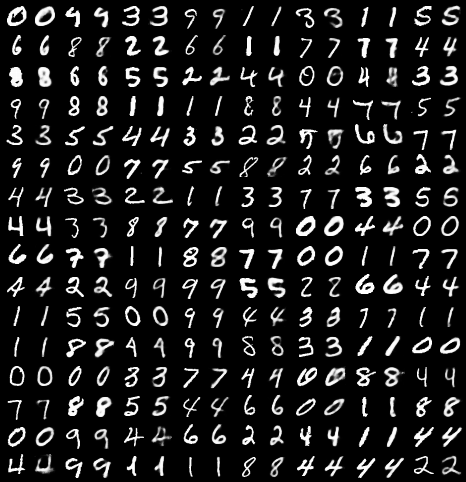 0 0 9 9 3 3 9 9 1 1 3 3 1 1 5 5
6 6 8 8 2 2 6 6 1 1 7 7 7 7 4 4
8 8 6 6 5 5 2 2 4 4 0 0 4 4 3 3
9 9 8 8 1 1 1 1 8 8 4 4 7 7 5 5
3 3 5 5 4 4 3 3 2 2 6 6 7 7
9 9 0 0 7 7 5 5 8 8 2 2 6 6 2 2
4 4 3 3 2 2 1 1 3 3 7 7 3 3 5 5
4 4 3 3 8 8 7 7 9 9 0 0 4 4 0 0
6 6 7 7 1 1 8 8 7 7 0 0 1 1 7 7
4 4 2 2 9 9 9 9 5 5 2 2 6 6 4 4
1 1 5 5 0 0 9 9 4 4 3 3 7 7 1 1
1 1 8 8 4 4 9 9 8 8 3 3 1 1 0 0
0 0 0 0 3 3 7 7 4 4 0 0 8 8 4 4
7 7 8 8 5 5 4 4 6 6 0 0 1 1 8 8
0 0 9 9 4 4 6 6 2 2 4 4 1 1 4 4
4 4 9 9 1 1 1 1 8 8 4 4 4 4 2 2